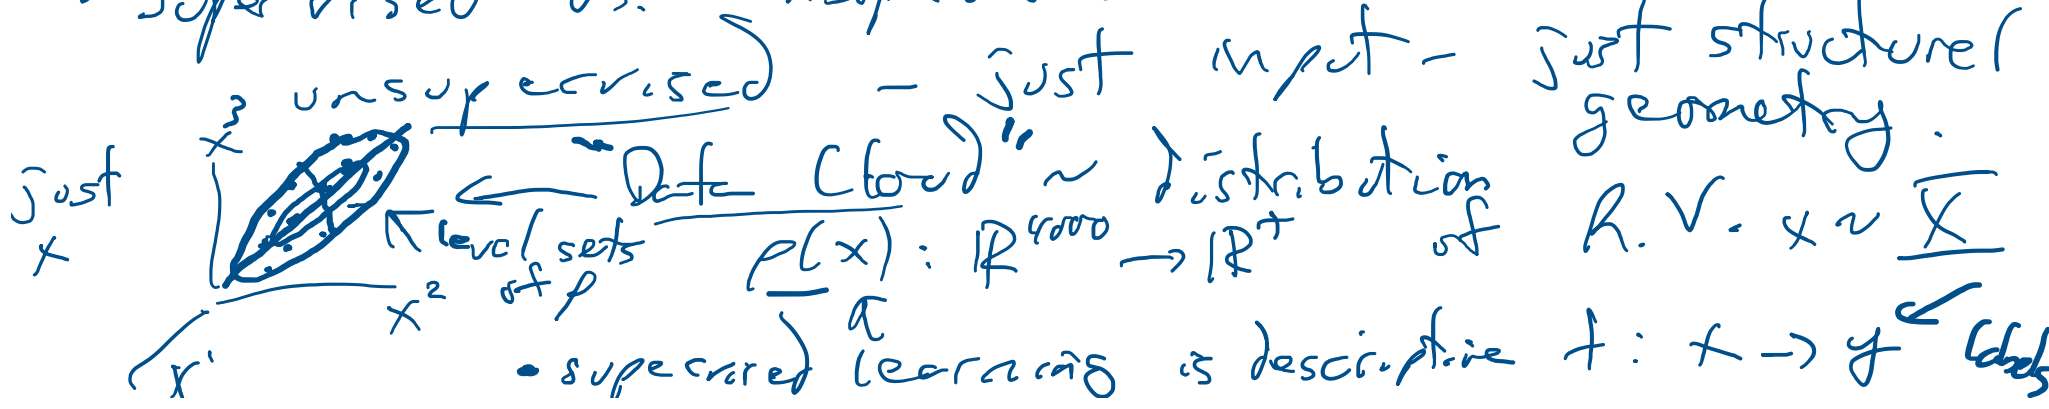 supervised vs.
unsupervised - just input - just structure/
geometry.
just
x
x³
x²
x¹
"Data Cloud" ~ distribution
of R.V. x ~ X
← level sets
of ρ
ρ(x) : ℝ⁴⁰⁰⁰ → ℝ⁺
• supervised learning is descriptive f : x → y ← labels